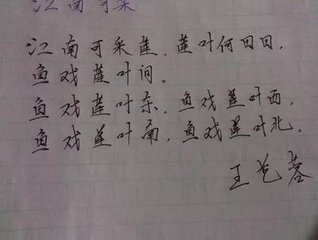 江南可采
江南可采莲，莲叶何田田，
鱼戏莲叶间。
鱼戏莲叶东，鱼戏莲叶西，
鱼戏莲叶南，鱼戏莲叶北。
王